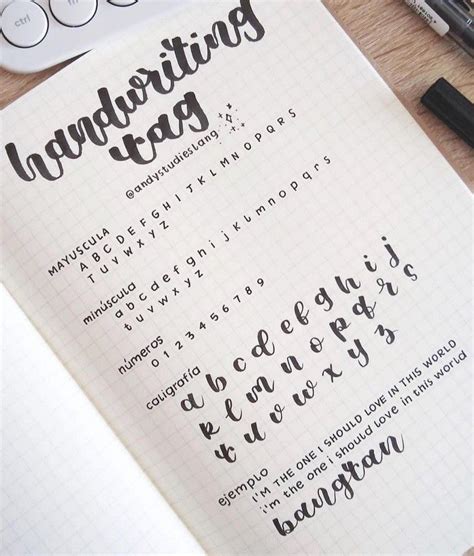 fn
ctrl
handwriting
tag
@andystudieslang
MAYUSCULA
A B C D E F G H I J K L M N O P Q R S
T U V W X Y Z
minúscula
a b c d e f g h i j k l m n o p q r s
t u v w x y z
números
0 1 2 3 4 5 6 7 8 9
caligrafía
a b c d e f g h i j
k l m n o p q r s
t u v w x y z
ejemplo
I'M THE ONE I SHOULD LOVE IN THIS WORLD
i'm the one i should love in this world
bangtan